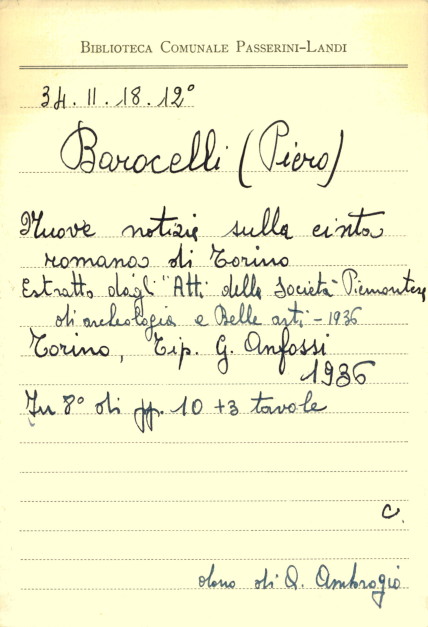 BIBLIOTECA COMUNALE PASSERINI-LANDI
34.II.18.12°
Barocelli (Piero)
Nuove notizie sulla cinta
romana di Torino
Estratto dagli "Atti della Società Piemontese
di archeologia e Belle arti - 1936
Torino, Tip. G. Anfossi
1936
In 8° di pp. 10 + 3 tavole
C.
dono di Q. Ambrogio